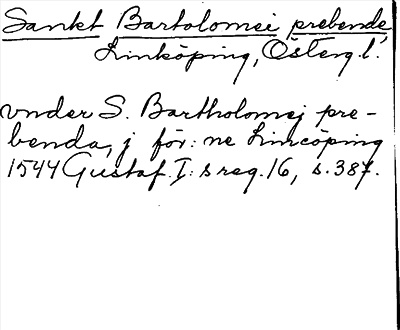 Sankt Bartolomei prebende
Linköping, Österg.l.
vnder S. Bartholomej pre-
benda, j för: ne Linncöping
1544 Gustaf I: s reg. 16, s. 387.